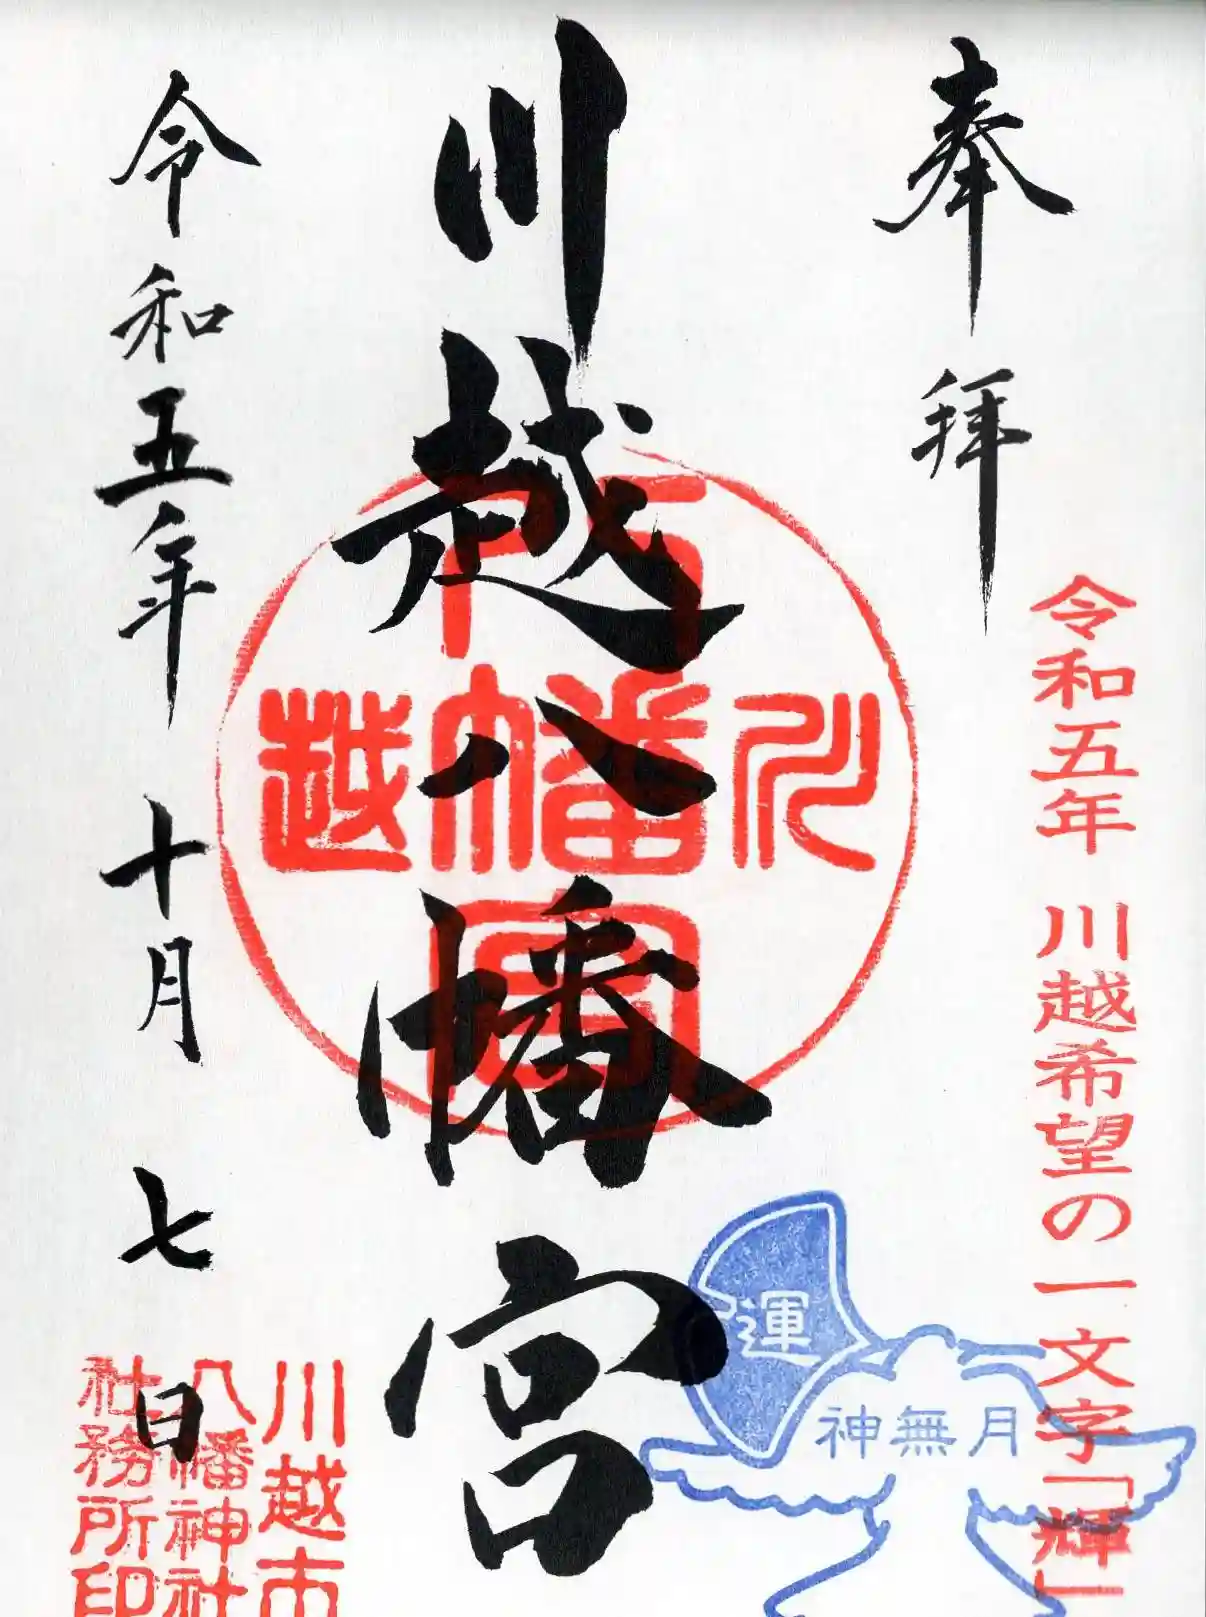 奉拝
令和五年 川越希望の一文字「輝」
川越八幡宮
川
八幡宮
越
運
神無月
令和五年 十月 七日
川越市
八幡神社
社務所印